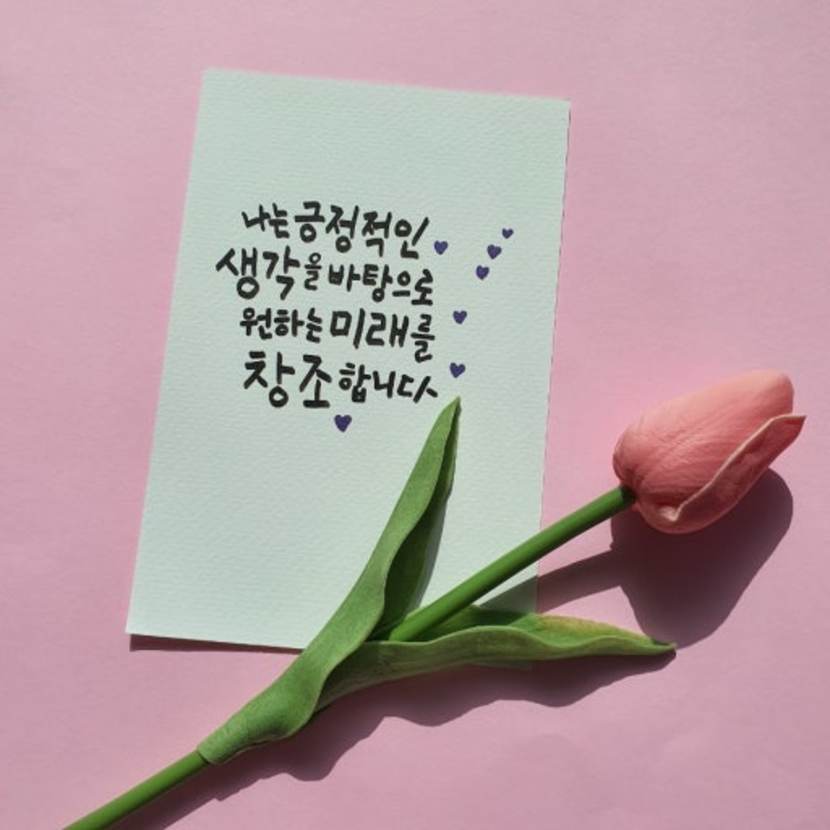 나는 긍정적인
생각을 바탕으로
원하는 미래를
창조합니다